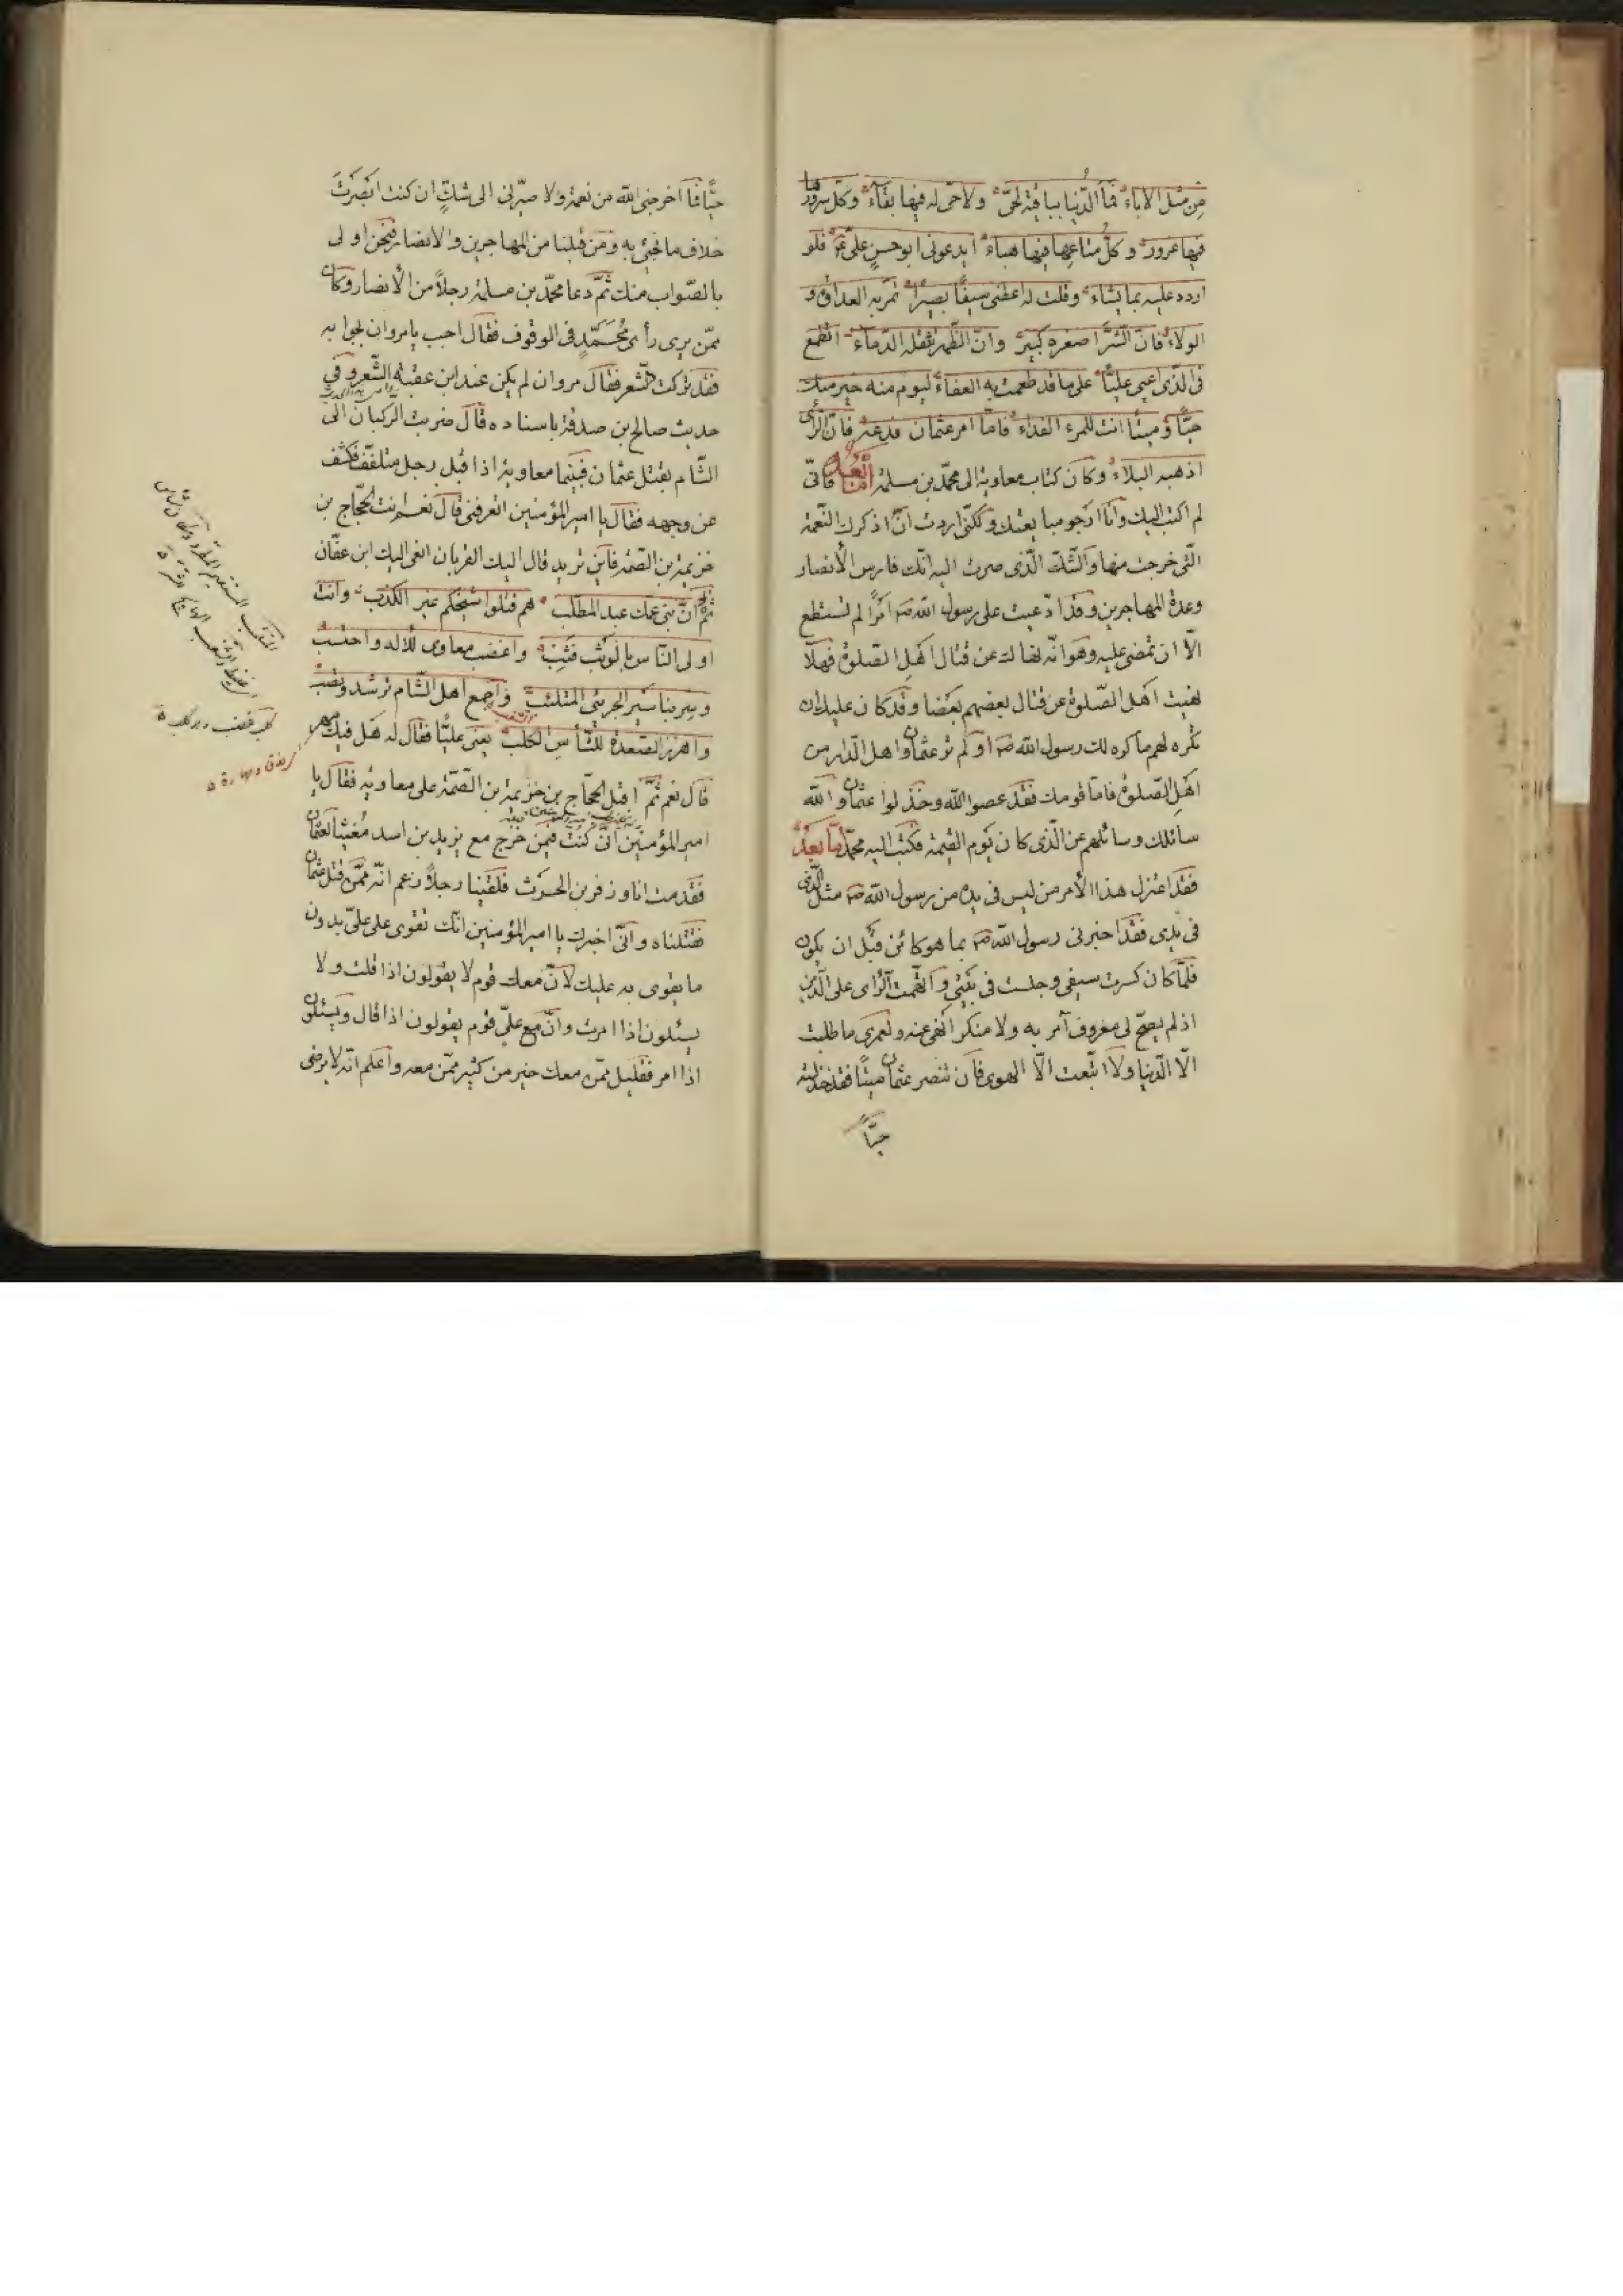 من مثل الاباء فما الدّنيا بباقية لحىّ ولا حىّ له فيها بقاء وكلّ سرورها
فيها غرور وكلّ متاعها فيها هباء ايدعونى ابو حسن علىّ فلم
اردد عليه بما يشاء وقلت له اعطنى سيفًا بصيرًا تمر به العداوة و
الولاء فانّ الشّرّ اصغره كبير وانّ الظّهر تثقله الدّماء اتطمع
فى الّذى اعيى عليًّا على ما قد طمعت به العفاء ليوم منه خير منك
حيًّا وميتًا انت للمرء الفداء فامّا امر عثمان فدعه فانّ الرّأى
اذهبه البلاء وكان كتاب معاوية الى محمّد بن مسلمة امّا بعد فانّى
لم اكتب اليك وانا ارجو مبايعتك ولكنّى اردت ان اذكرك النّعمة
الّتى خرجت منها والشّكّ الّذى صرت اليه انّك فارس الأنصار
وعدة المهاجرين وقد ادّعيت على رسول الله ص امرًا لم تستطع
الّا ان تمضى عليه وهو انّه نهاك عن قتال اهل الصّلوة فهلّا
نهيت اهل الصّلوة عن قتال بعضهم بعضا وقد كان عليك ان
تكره لهم ما كره لك رسول الله ص او لم تر عثمان واهل الدّار من
اهل الصّلوة فامّا قومك فقد عصوا الله وخذلوا عثمان والله
سائلك وسائلهم عن الّذى كان يوم القيمة فكتب اليه محمّد امّا بعد
فقد اعتزل هذا الأمر من ليس فى يده من رسول الله ص مثل الّذى
فى يدى فقد اخبرنى رسول الله ص بما هو كائن قبل ان يكون
فلمّا كان كسرت سيفى وجلست فى بيتى واتّهمت الرّاى على الدّين
اذ لم يصحّ لى معروف آمر به ولا منكر انهى عنه ولعمرى ما طلبت
الّا الدّنيا ولا اتّبعت الّا الهوى فان تنصر عثمان ميتًا فقد خذلته
حيًّا
حيًّا فما اخرجنى الله من نعمة ولا صيّرنى الى شكّ ان كنت ابصرت
خلاف ما تحبّنى به ومن قبلنا من المهاجرين والانصار فنحن اولى
بالصّواب منك ثمّ دعا محمّد بن مسلمة رجلاً من الأنصار وكان
ممّن يرى رأى محمّد فى الوقوف فقال اجب يا مروان بجوابه
فقد تركت الشّعر فقال مروان لم يكن عند ابن عقبة الشّعر وفى
حديث صالح بن صدقة باسناده قال ضربت الرّكبان الى
الشّام بقتل عثمان فبينما معاوية اذا قبل رجل متلفّف فكشف
عن وجهه فقال يا امير المؤمنين اتعرفنى قال نعم انت الحجّاج بن
خزيمة بن الصّمّة فاين تريد قال اليك القربان انعى اليك ابن عفّان
ثمّ انّ بنى عمّك عبد المطّلب هم قتلوا شيخكم غير الكذب وانت
اولى النّاس بالوثب فثب واغضب معاوى للاله واحتسب
وسر بنا سير الجرىء المتلئبّ واجمع اهل الشّام ترشد وتصب
واهزز الصّعدة للشّأس الكلب يعنى عليًّا فقال له هل فيك مهز
قال نعم ثمّ اقبل الحجّاج بن خزيمة بن الصّمّة على معاوية فقال يا
امير المؤمنين انّى كنت فيمن خرج مع يزيد بن اسد مغيثًا لعثمان
فقدمت انا وزفر بن الحرث فلقينا رجلاً زعم انّه ممّن قتل عثمان
فقتلناه وانّى اخبرك يا امير المؤمنين انّك تقوى على علىّ بدون
ما يقوى به عليك لانّ معك قوم لا يقولون اذا قلت ولا
يسئلون اذا امرت وانّ مع علىّ قوم يقولون اذا قال ويسئلون
اذا امر فقليل ممّن معك خير من كثير ممّن معه واعلم انّه لا يرضى